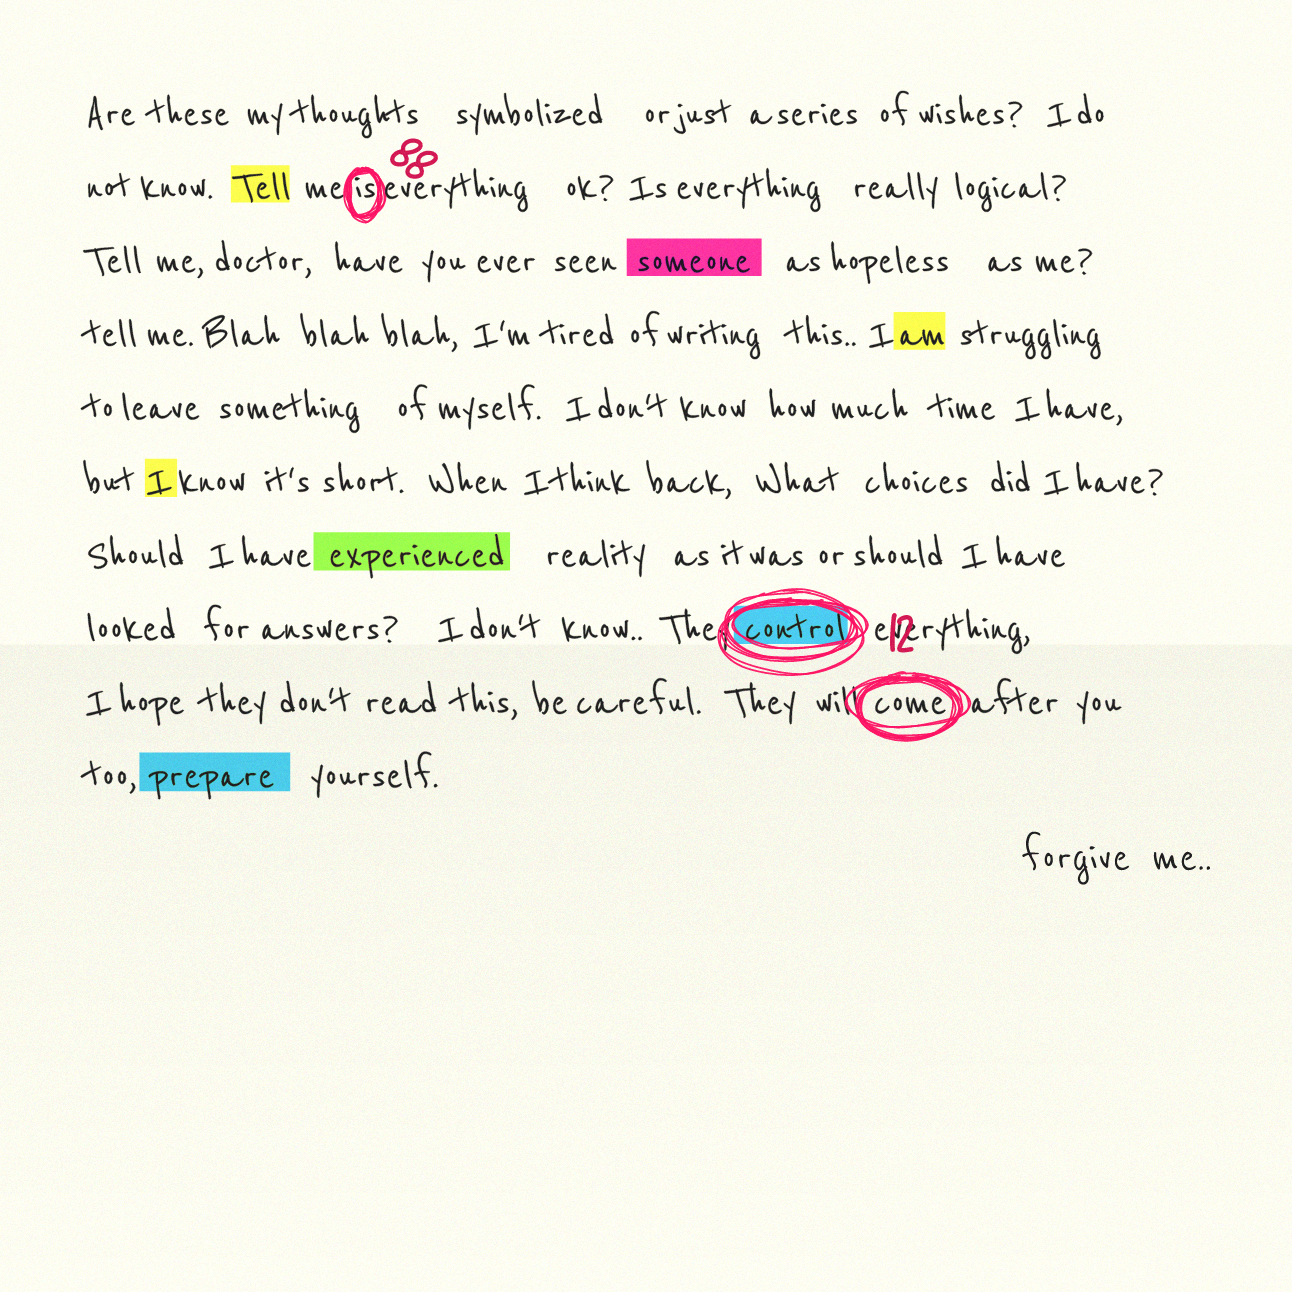 Are these my thoughts symbolized or just a series of wishes? I do
not know. Tell me is everything ok? Is everything really logical?
Tell me, doctor, have you ever seen someone as hopeless as me?
tell me. Blah blah blah, I'm tired of writing this.. I am struggling
to leave something of myself. I don't know how much time I have,
but I know it's short. When I think back, What choices did I have?
Should I have experienced reality as it was or should I have
looked for answers? I don't know.. They control everything,
12
I hope they don't read this, be careful. They will come after you
too, prepare yourself.
forgive me..